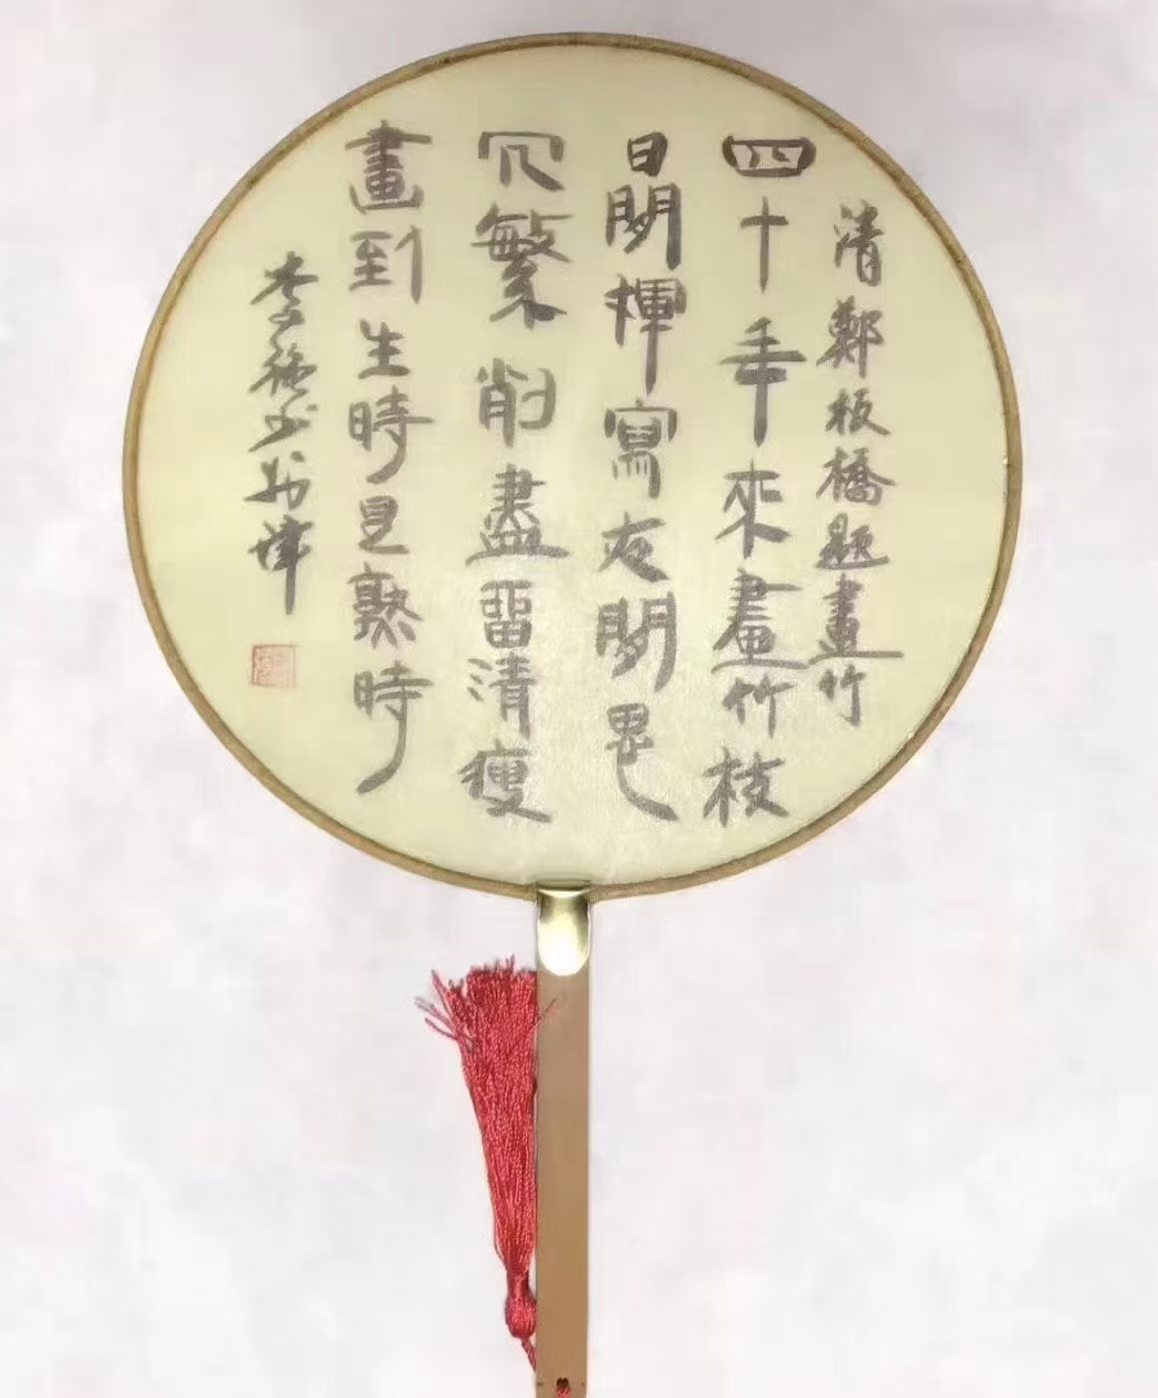 清鄭板橋題畫竹
四十年來畫竹枝
日間揮寫夜間思
冗繁削盡留清瘦
畫到生時是熟時